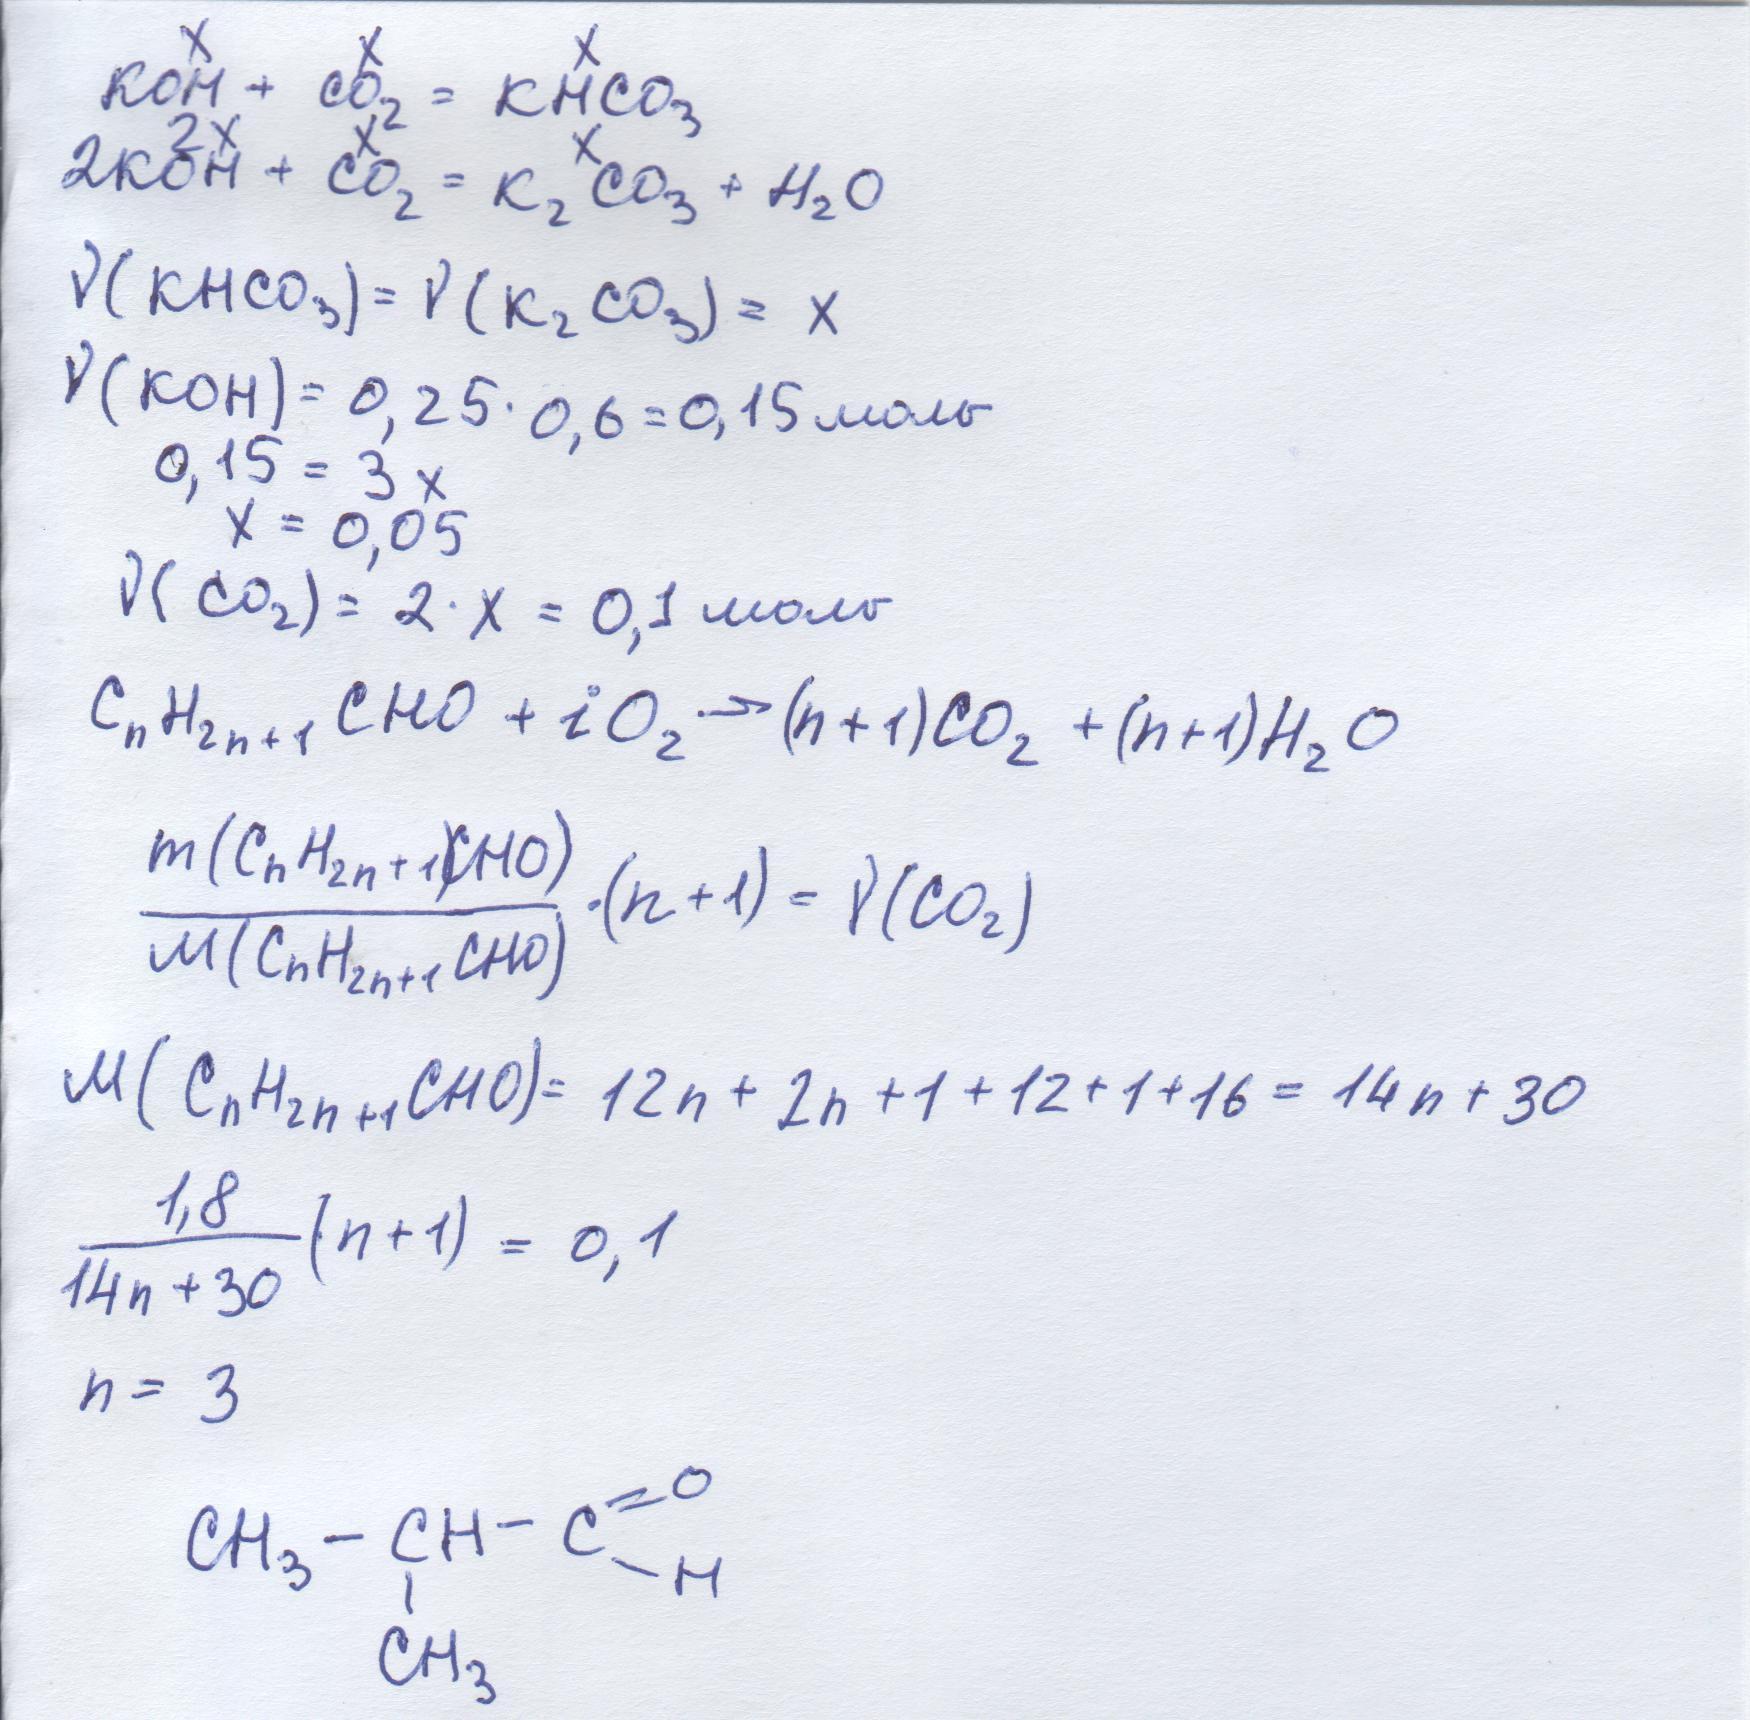 x x x
KOH + CO₂ = KHCO₃
2x x x
2KOH + CO₂ = K₂CO₃ + H₂O
ν(KHCO₃) = ν(K₂CO₃) = x
ν(KOH) = 0,25·0,6 = 0,15 моль
0,15 = 3x
x = 0,05
ν(CO₂) = 2·x = 0,1 моль
CₙH₂ₙ₊₁CHO + iO₂ → (n+1)CO₂ + (n+1)H₂O
m(CₙH₂ₙ₊₁CHO)
·(n+1) = ν(CO₂)
M(CₙH₂ₙ₊₁CHO)
M(CₙH₂ₙ₊₁CHO) = 12n + 2n + 1 + 12 + 1 + 16 = 14n + 30
1,8
(n+1) = 0,1
14n + 30
n = 3
O
CH₃ – CH – C
H
CH₃